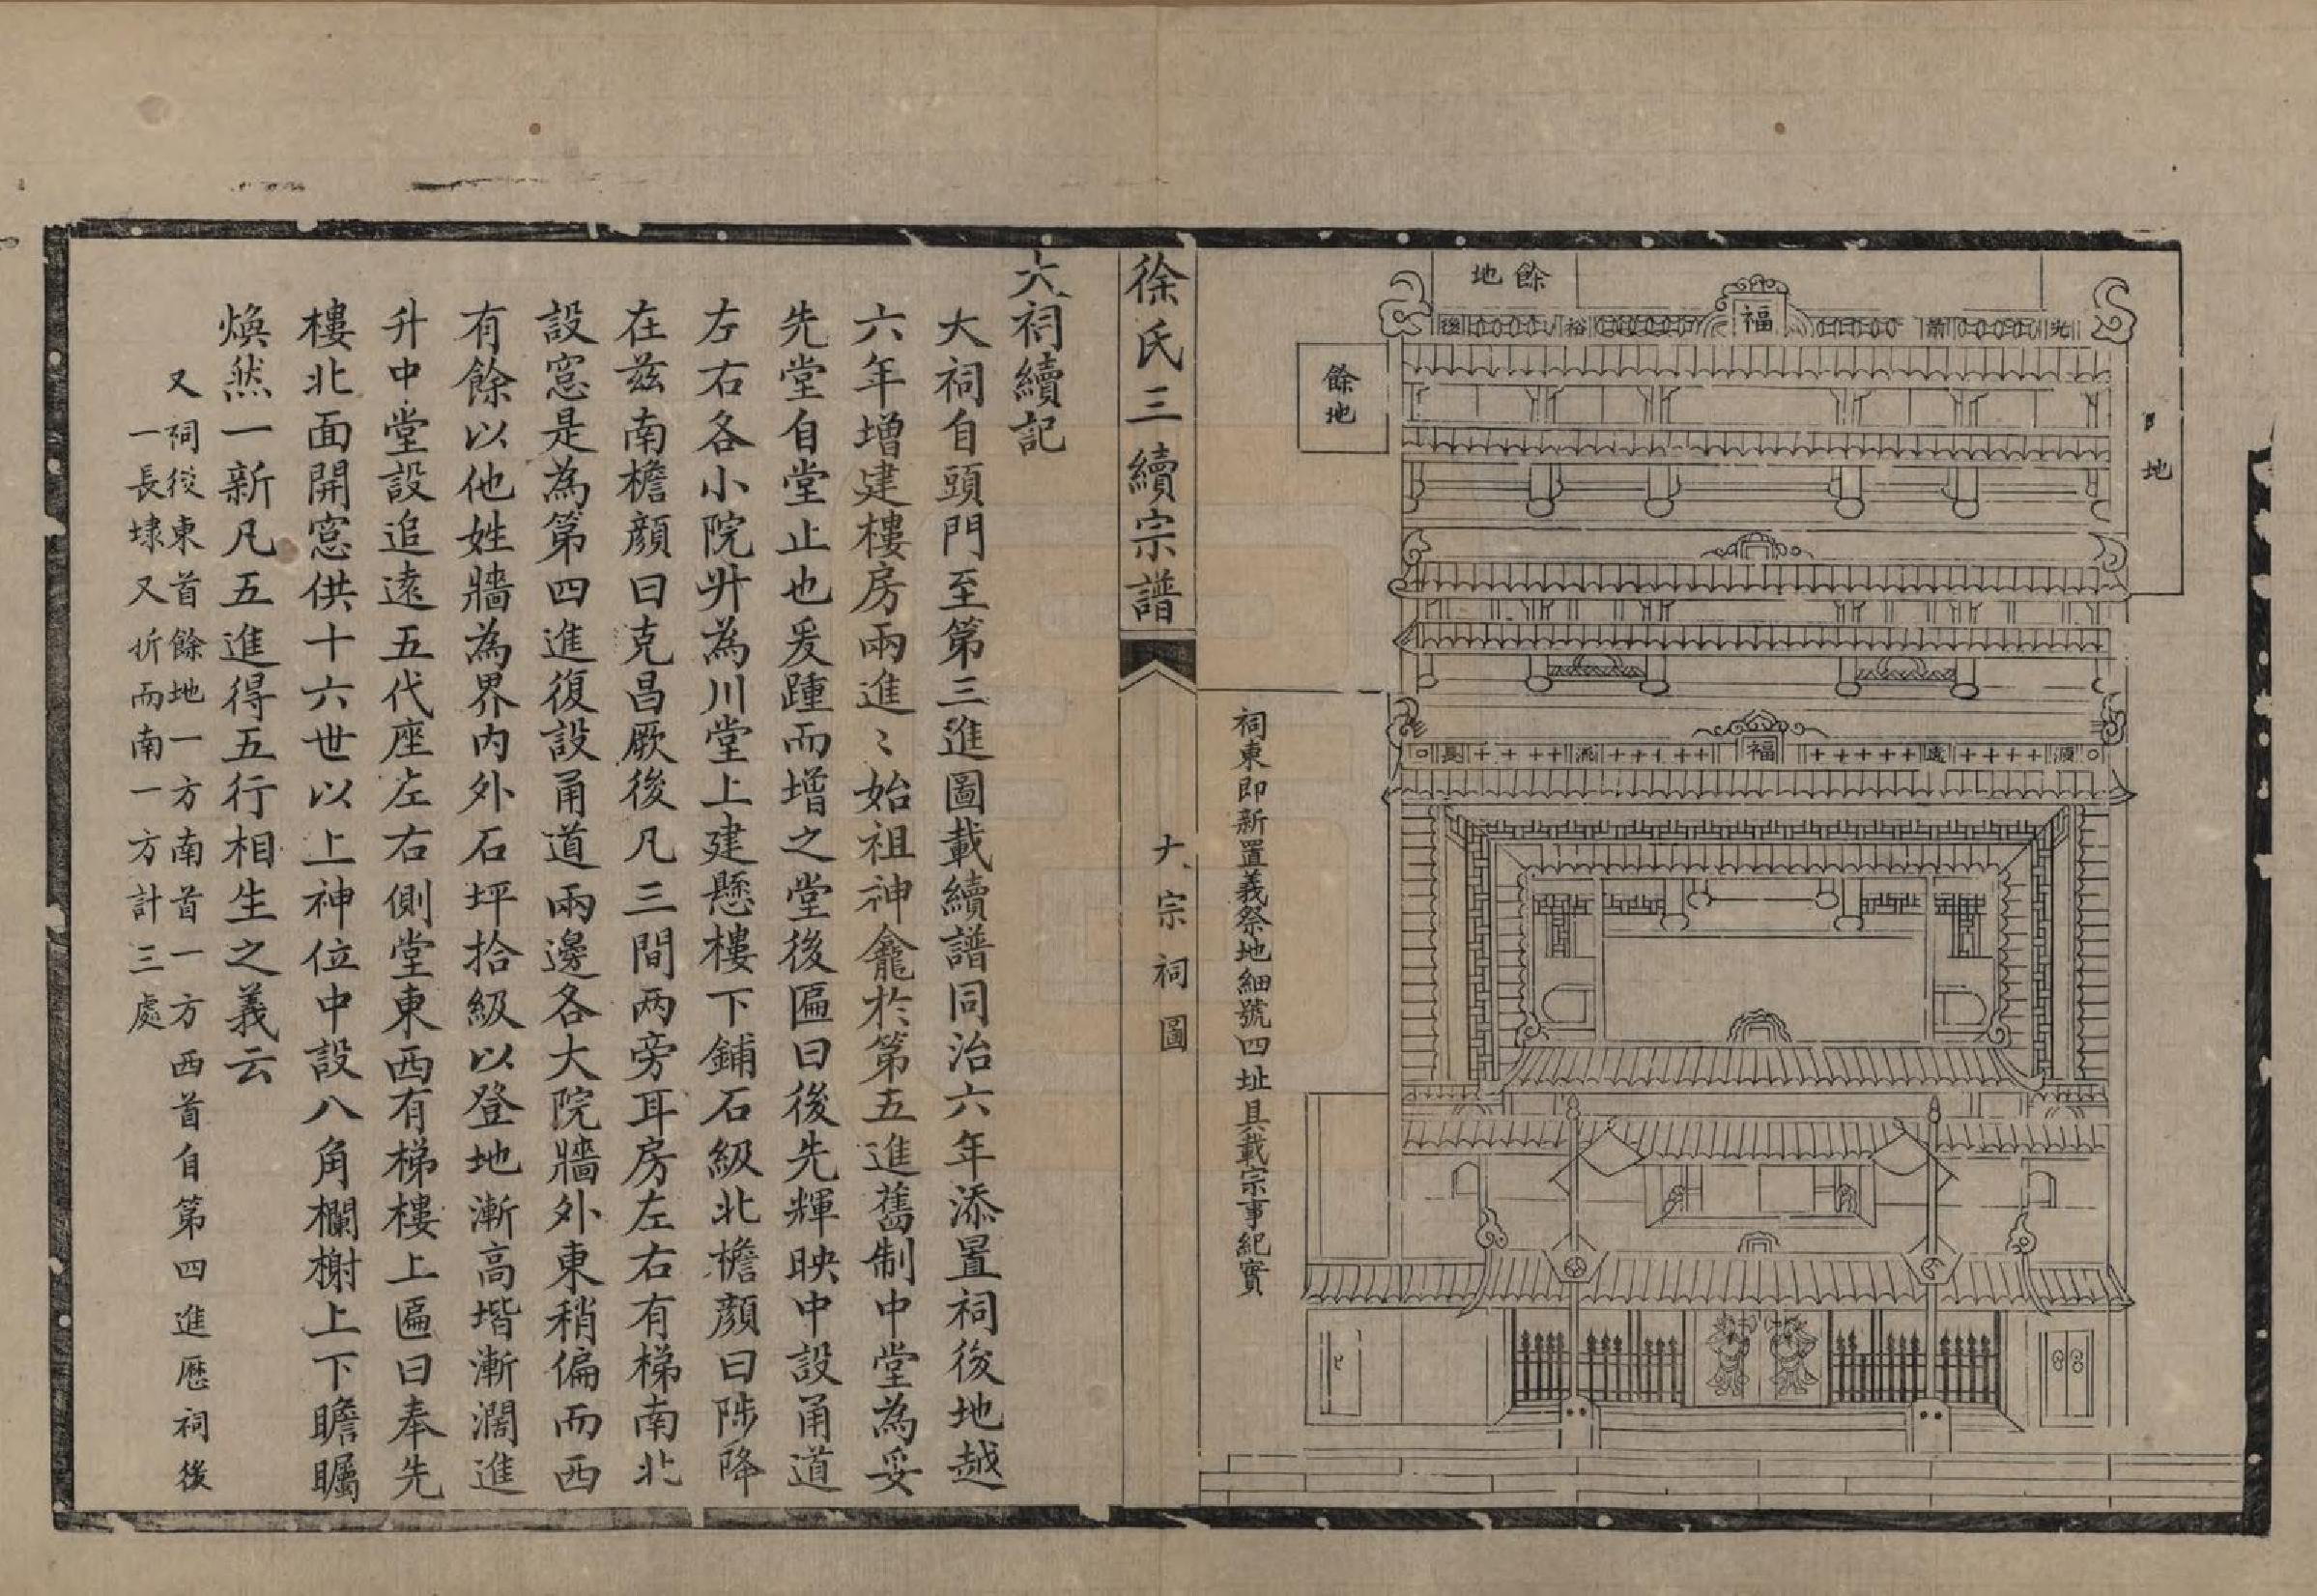 餘地
福
光前裕後
餘地
地
福
源遠流長
祠東即新置義祭地細號四址具載宗事紀實
徐氏三續宗譜
大宗祠圖
大祠續記
大祠自頭門至第三進圖載續譜同治六年添置祠後地越
六年增建樓房兩進〻始祖神龕於第五進舊制中堂為妥
先堂自堂止也爰踵而增之堂後匾曰後先輝映中設甬道
左右各小院廾為川堂上建懸樓下鋪石級北檐顏曰陟降
在茲南檐顏曰克昌厥後凡三間两旁耳房左右有梯南北
設窓是為第四進復設甬道兩邊各大院牆外東稍偏而西
有餘以他姓牆為界内外石坪拾級以登地漸高堦漸濶進
升中堂設追遠五代座左右側堂東西有梯樓上匾曰奉先
樓北面開窓供十六世以上神位中設八角欄榭上下瞻矚
煥然一新凡五進得五行相生之義云
又祠後東首餘地一方南首一方西首自第四進歷祠後
一長埭又折而南一方計三處